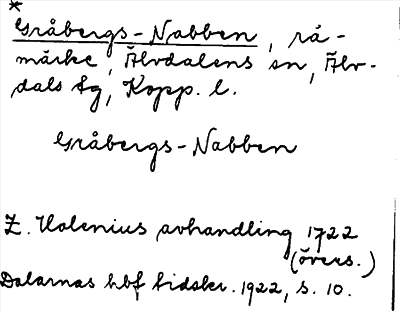 *
Gråbergs-Nabben, rå-
märke, Älvdalens sn, Älv-
dals tg, Kopp. l.
Gråbergs-Nabben
Z. Holenius avhandling 1722
(övers.)
Dalarnas hbf tidskr. 1922, s. 10.